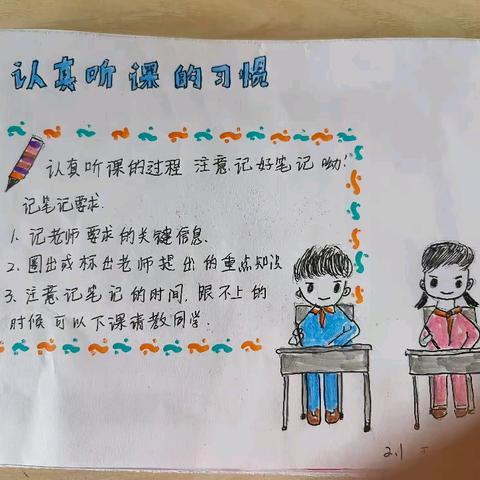 认真听课的习惯
认真听课的过程 注意记好笔记呦!
记笔记要求.
1. 记老师要求的关键信息.
2. 圈出或标出老师提出的重点知识
3. 注意记笔记的时间. 跟不上的
时候可以下课请教同学.
2.1